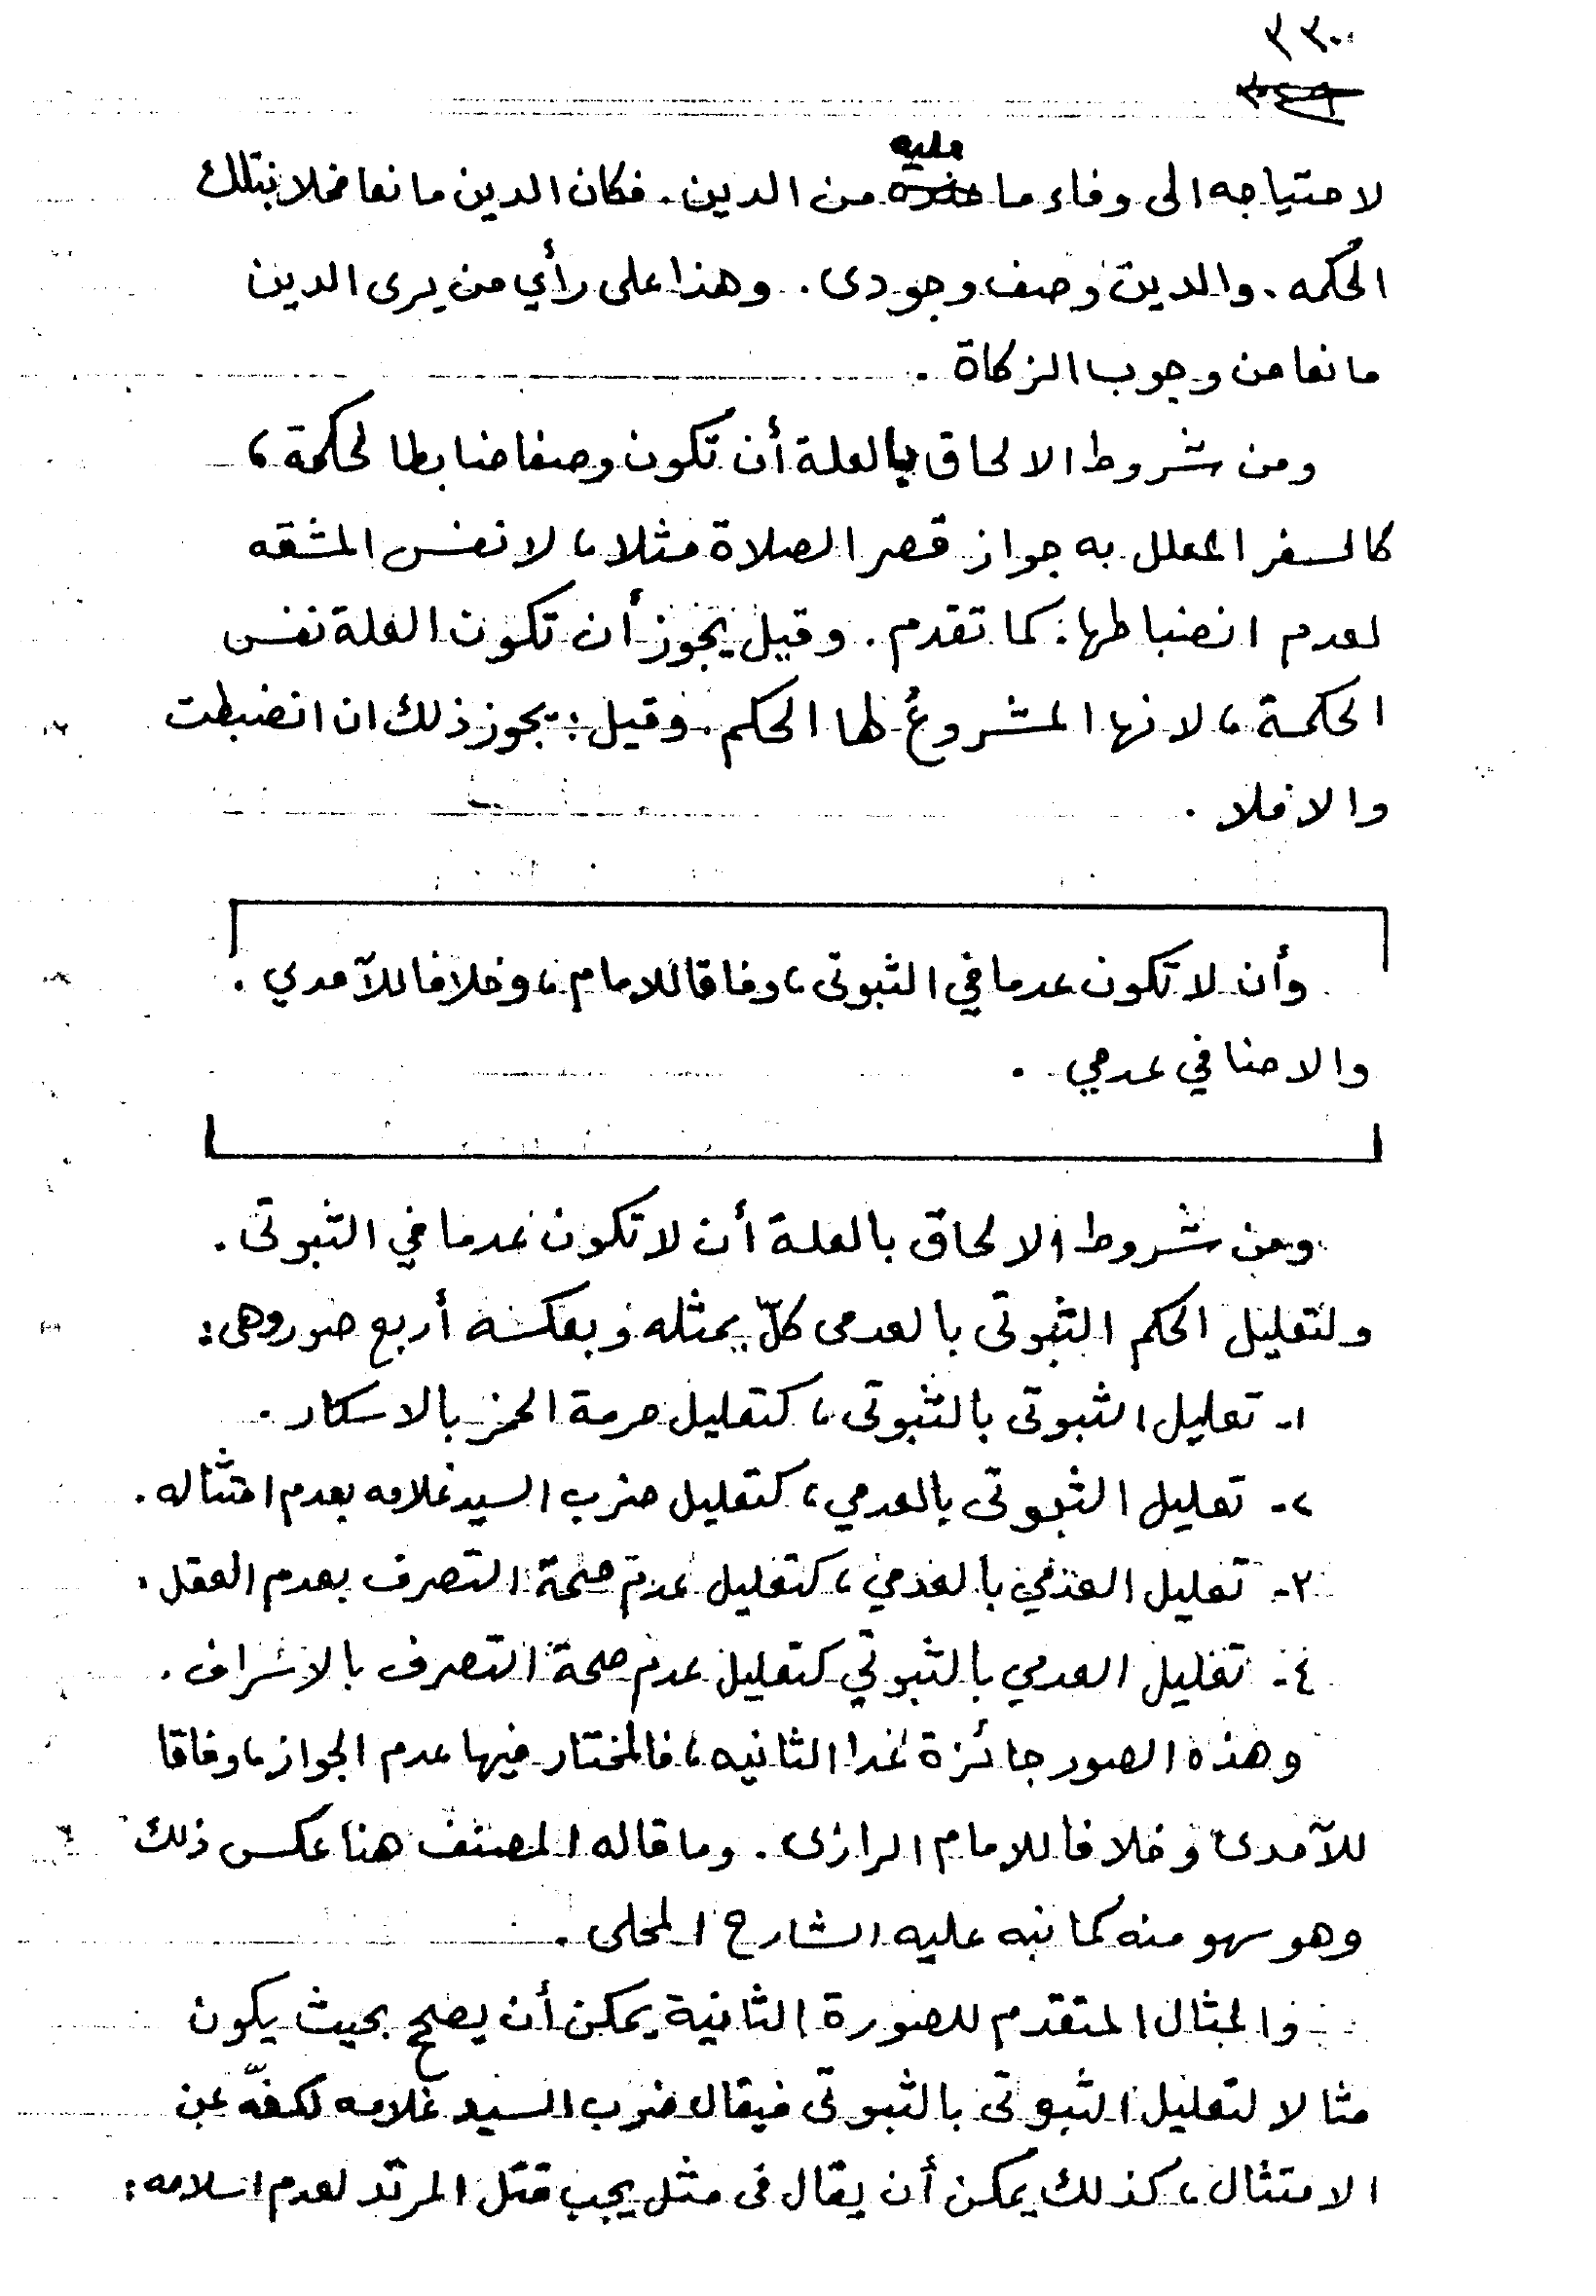 ٣٣٠
لاحتياجه الى وفاء ما عليه من الدين. فكان الدين مانعا مخلا بتلك
الحُكمه. والدين وصف وجودى. وهذا على رأي من يرى الدين
مانعا من وجوب الزكاة.
ومن شروط الالحاق بالعلة أن تكون وصفا ضابطا لحكمة،
كالسفر المعلل به جواز قصر الصلاة مثلا، لا نفس المشقه
لعدم انضباطها: كما تقدم. وقيل يجوز أن تكون العلة نفس
الحكمة، لانها المشروعُ لها الحكم. وقيل: يجوز ذلك ان انضبطت
والا فلا.
وأن لا تكون عدما في الثبوتى، وفاقا للامام، وخلافا للآمدي.
والاضافي عدمي.
ومن شروط الالحاق بالعلة أن لا تكون عدما في الثبوتى.
ولتعليل الحكم الثبوتى بالعدمى كلّ بمثله وبعكسه أربع صور وهى:
١- تعليل الثبوتى بالثبوتى، كتعليل حرمة الخمر بالاسكار.
٢- تعليل الثبوتى بالعدمي، كتعليل ضرب السيد غلامه بعدم امتثاله.
٣- تعليل العدمي بالعدمي، كتعليل عدم صحة التصرف بعدم العقل.
٤- تعليل العدمي بالثبوتي كتعليل عدم صحة التصرف بالاسراف.
وهذه الصور جائزة عدا الثانيه، فالمختار فيها عدم الجواز، وفاقا
للآمدى وخلافا للامام الرازى. وما قاله المصنف هنا عكس ذلك
وهو سهو منه كما نبه عليه الشارح المحلى.
والمثال المتقدم للصورة الثانية يمكن أن يصحح بحيث يكون
مثالا لتعليل الثبوتى بالثبوتى فيقال ضرب السيد غلامه لكفّه عن
الامتثال، كذلك يمكن أن يقال فى مثل يجب قتل المرتد لعدم اسلامه: